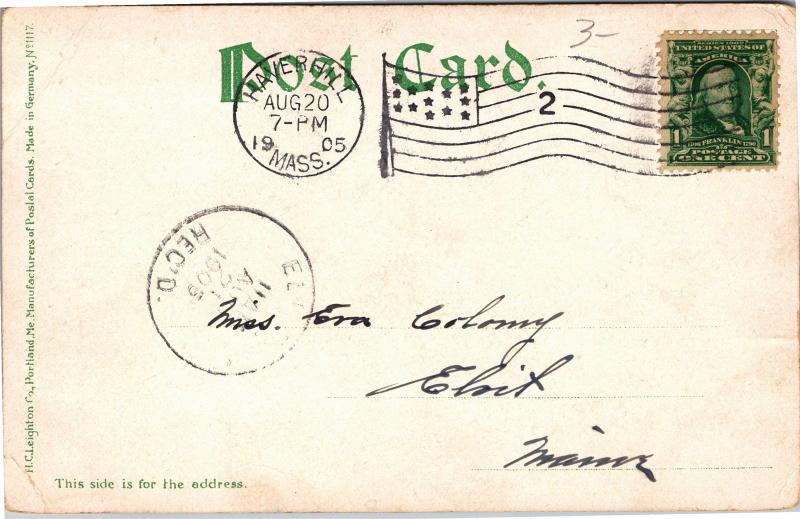 3-
Post Card.
HAVERHILL
AUG 20
7-PM
1905
MASS.
2
SERIES 1902
UNITED STATES OF
AMERICA
1 1
1706 FRANKLIN 1790
POSTAGE
ONE CENT
REC'D.
1905
Miss. Eva Colomy
Eliot
Maine
This side is for the address.
H.C. Leighton Co., Portland, Me. Manufacturers of Postal Cards. Made in Germany. No 1117.